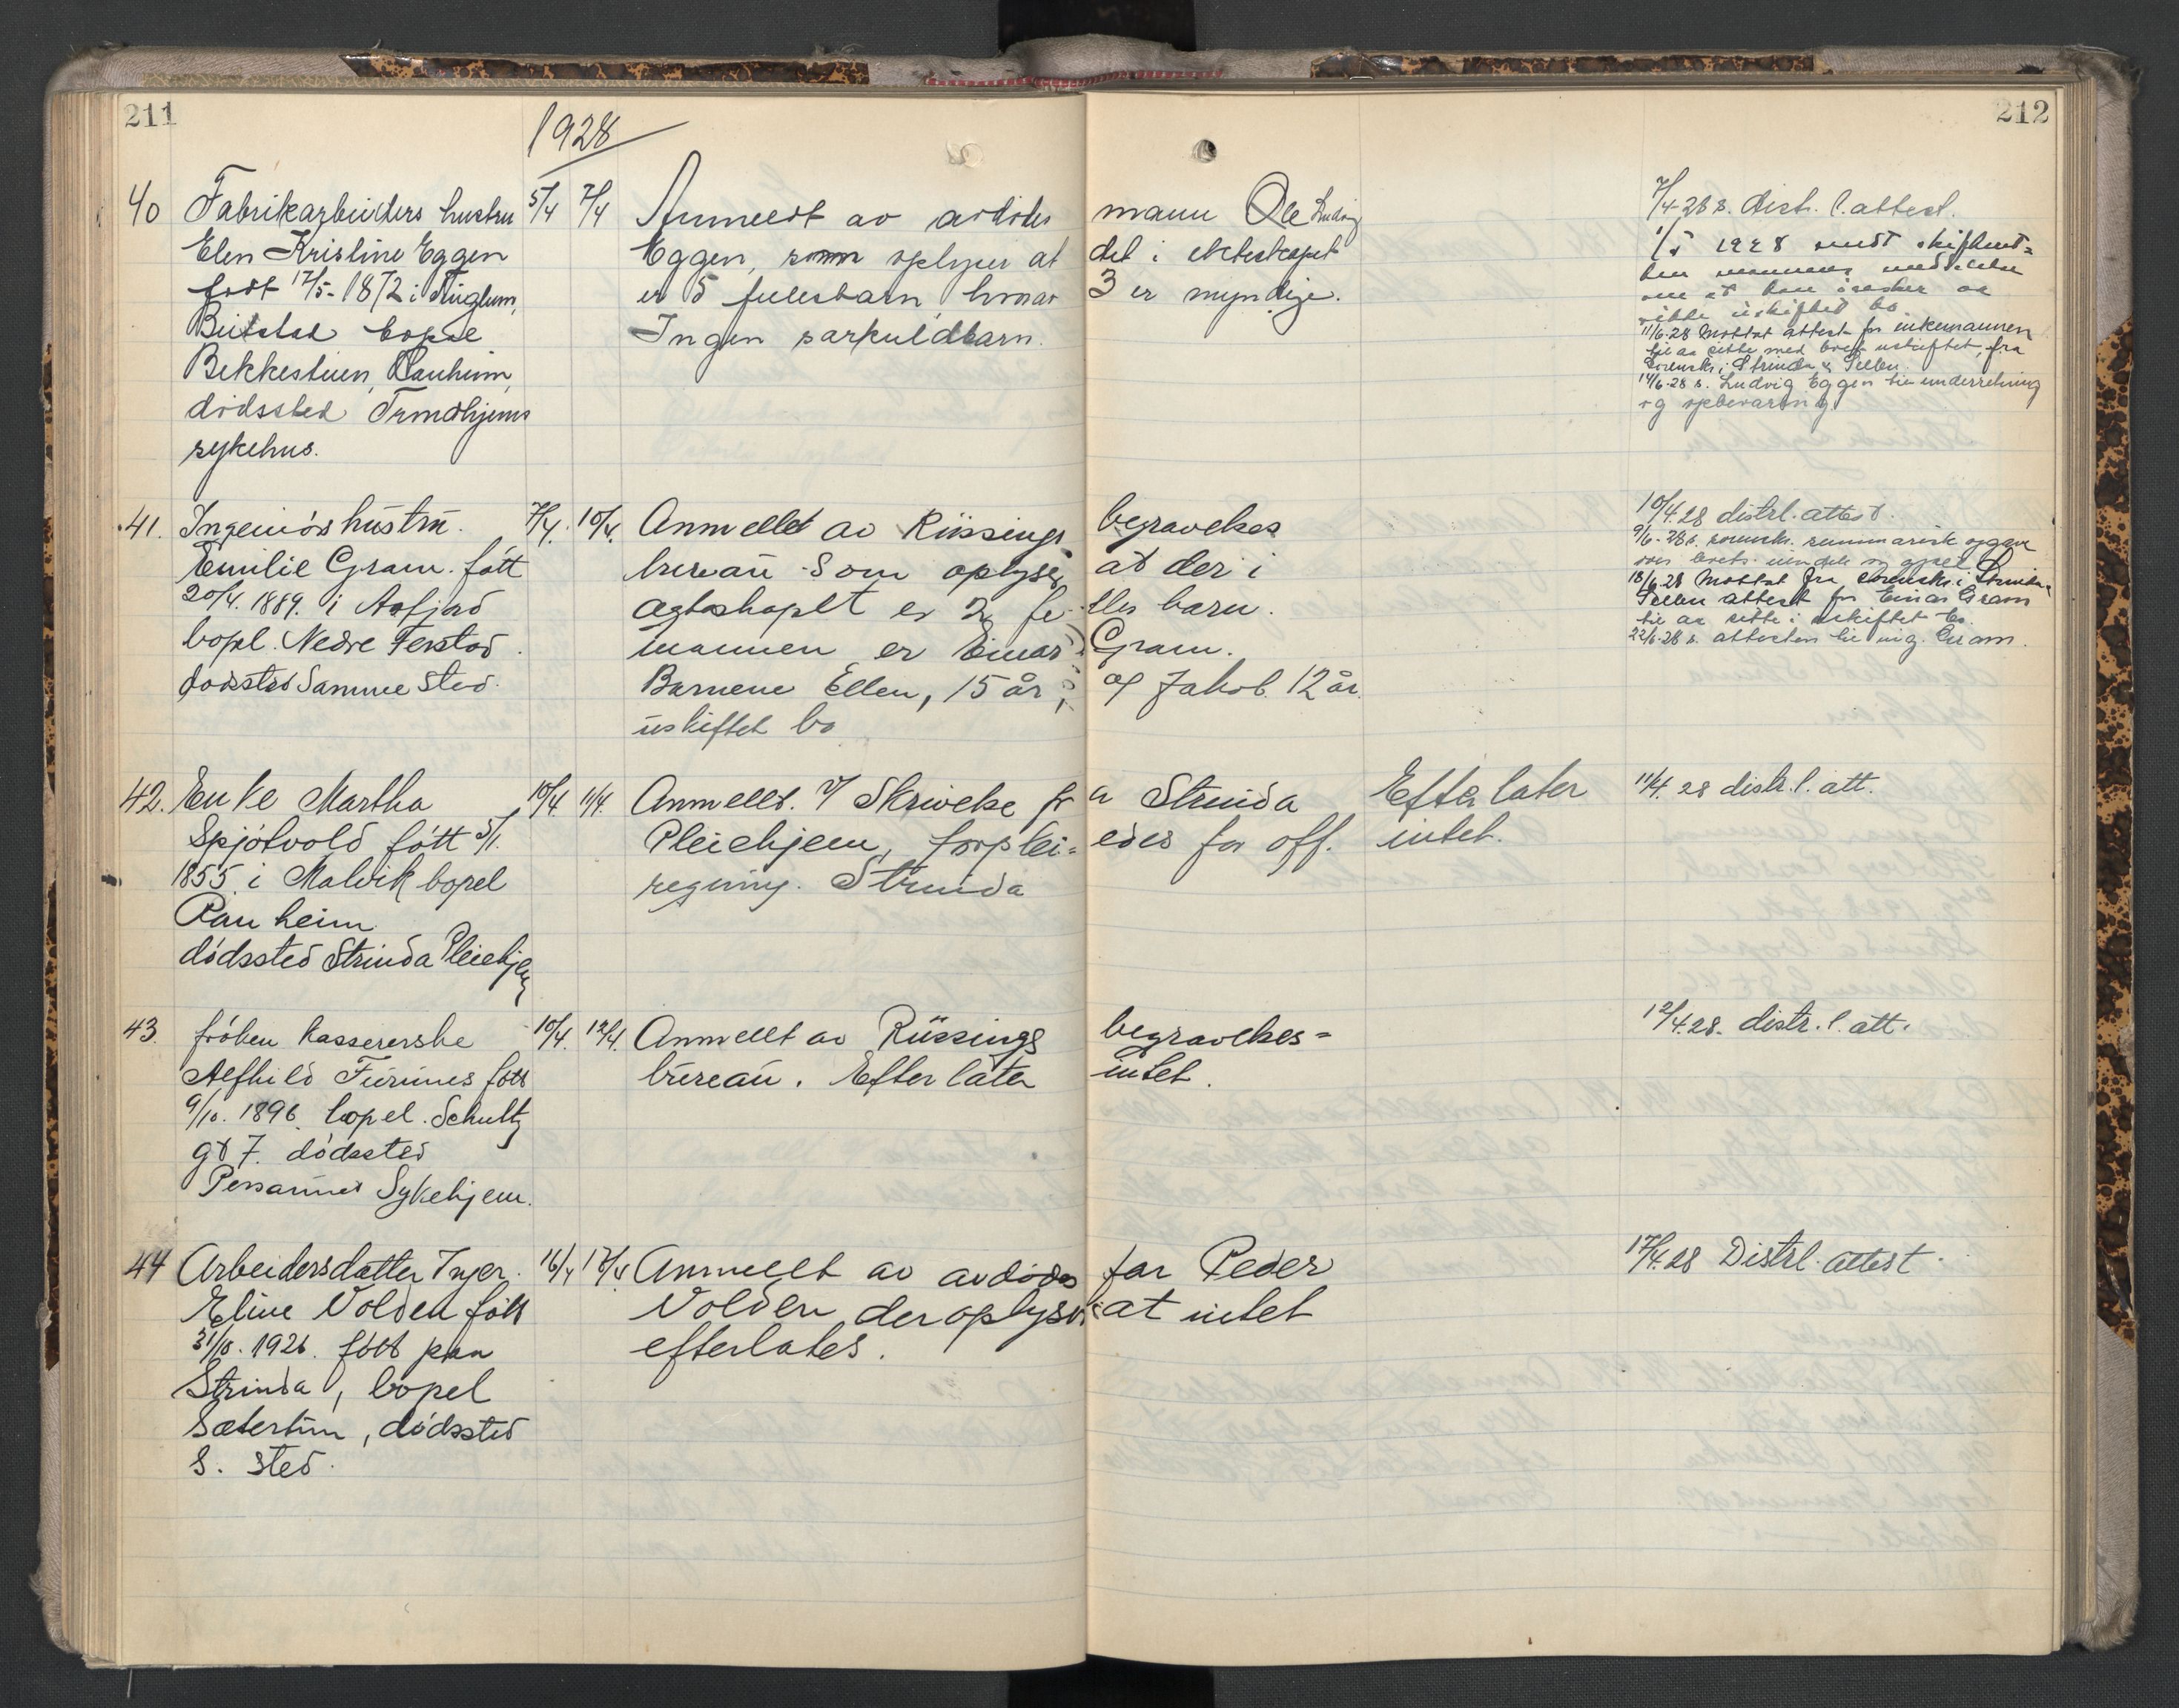 211
212
1928
40 Fabrikarbeiders hustru 5/4 7/4 Anmeldt av avdødes mann Ole Ludvig
Elen Kristine Eggen Eggen, som oplyser at det i ekteskapet
født 17/5-1872 i er 5 fellesbarn, hvorav 3 er myndige.
Beitstad bopæl Ingen særkuldbarn.
Bekkestuen, Ranheim,
dødssted Trondhjems
sykehus.
7/4-28 s. distr. l. attest.
1/5 1928
11/6-28 Mottat attest for enkemannen
til aa sitte med boet uskiftet, fra
Sorenskr. i Strinda & Selbu.
14/6-28 s. Ludvig Eggen til underretning
og opbevaring
41. Ingeniørs hustru. 7/4. 10/4. Anmeldt av Rüssings begravelses
Emilie Gram. fött bureau som oplyser at der i
20/4. 1889. i Aafjord ægteskapet er 2 felles barn.
bopl. Nedre Ferstad. mannen er Einar Gram.
dødssted Samme sted. Barnene Ellen, 15 år, og Jakob 12 år.
uskiftet bo
10/4.28 distrl. attest.
9/6-28 s. sorenskr. summarisk opgave
over boets eiendele og gjæld
18/6-28 Mottat fra sorenskr. i Strinda &
Selbu attest for Einar Gram
til aa sitte i uskiftet bo.
22/6-28 s. attesten til ing. Gram.
42. Enke Martha 10/4. 11/4. Anmeldt. V/ Skrivelse fra Strinda Efterlater 11/4. 28 distr. l. att.
Spjötvold fött 5/1. Pleiehjem, forplei= edes for off. intet.
1855 i Malvik bopel regning. Strinda
Ranheim
dödssted Strinda Pleiehjem
43. fröken kassererske 10/4. 12/4. Anmeldt av Rüssings begravelses= 12/4.28. distr. l. att.
Alfhild Furunes fött bureau. Efterlater intet.
9/10. 1896. bopel. Schultz
gt 7. dödssted
Persaunet Sykehjem.
44 Arbeidersdatter Inger 16/4 17/4 Anmeldt av avdödes far Peder 17/4.28 Distrl. attest.
Eline Volden fött Volden der oplyser at intet
31/10. 1926. fött paa efterlates.
Strinda, bopel
Sætertun, dödssted
S. sted.